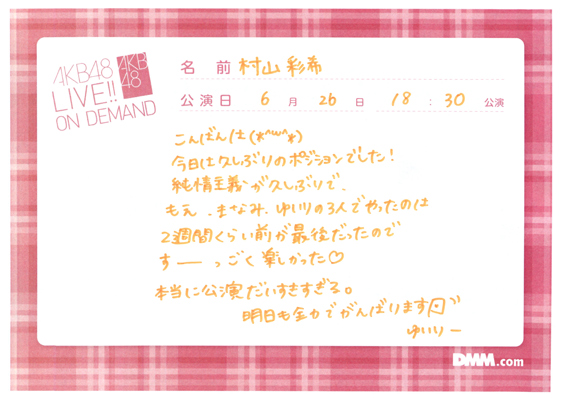 AKB48
LIVE!!
ON DEMAND
AKB
48
名 前 村山 彩希
公演日 6 月 26 日 18 : 30 公演
こんばんは(*^ω^*)
今日は久しぶりのポジションでした!
純情主義が久しぶりで、
もえ、まなみ、ゆいりの3人でやったのは
2週間くらい前が最後だったので
す――っごく楽しかった♡
本当に公演だいすきすぎる。
明日も全力でがんばります
ゆいりー
DMM.com